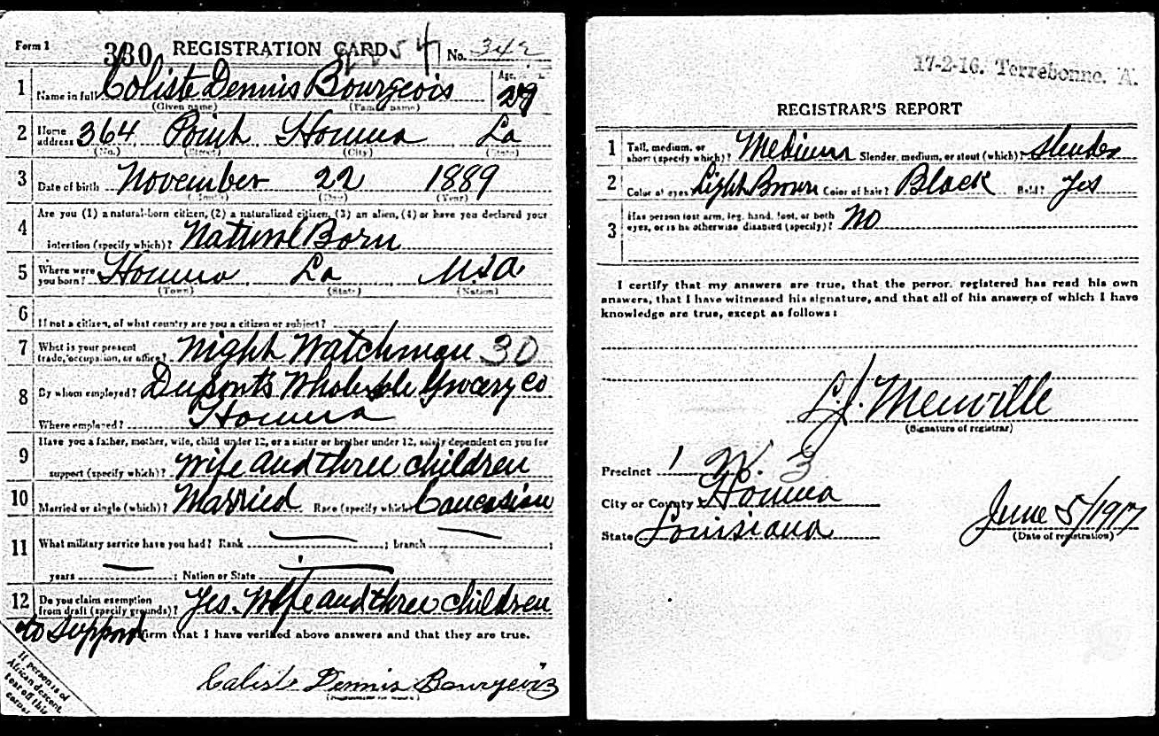 Form 1 330 REGISTRATION CARD No. 342
1 Name in full Coliste Dennis Bourgeois Age, in yrs.
(Given name) (Family name) 29
2 Home address 364 Point Houma La
(No.) (Street) (City) (State)
3 Date of birth November 22 1889
(Month) (Day) (Year)
4 Are you (1) a natural-born citizen, (2) a naturalized citizen, (3) an alien, (4) or have you declared your
intention (specify which)? Natural Born
5 Where were you born? Houma La U.S.A
(Town) (State) (Nation)
6 If not a citizen, of what country are you a citizen or subject?
7 What is your present trade, occupation, or office? Night Watchman 30
8 By whom employed? Duponts Wholesale Grocery Co
Where employed? Houma
9 Have you a father, mother, wife, child under 12, or a sister or brother under 12, solely dependent on you for
support (specify which)? Wife and three children
10 Married or single (which)? Married Race (specify which)? Caucasian
11 What military service have you had? Rank ; branch ;
years ; Nation or State
12 Do you claim exemption from draft (specify grounds)? Yes. Wife and three children
to support
firm that I have verified above answers and that they are true.
Caliste Dennis Bourgeois
If person is of
African descent,
tear off this
corner
17-2-16. Terrebonne. A.
REGISTRAR'S REPORT
1 Tall, medium, or short (specify which)? Medium Slender, medium, or stout (which)? slender
2 Color of eyes? Light Brown Color of hair? Black Bald? Yes
3 Has person lost arm, leg, hand, foot, or both eyes, or is he otherwise disabled (specify)? No
I certify that my answers are true, that the person registered has read his own
answers, that I have witnessed his signature, and that all of his answers of which I have
knowledge are true, except as follows:
L.J. Menville
(Signature of registrar)
Precinct 1 W. 3
City or County Houma
State Louisiana
June 5/1917
(Date of registration)